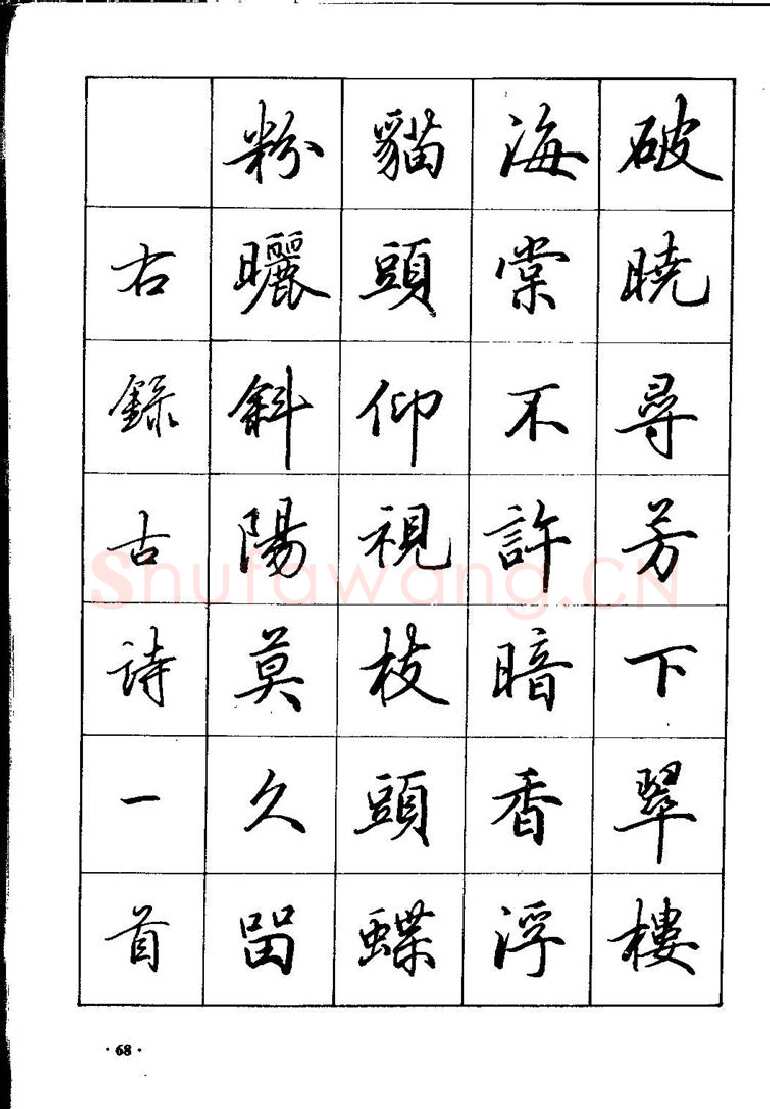 破曉尋芳下翠樓
海棠不許暗香浮
貓頭仰視枝頭蝶
粉曬斜陽莫久留
右錄古詩一首
Shufawang.CN
·68·